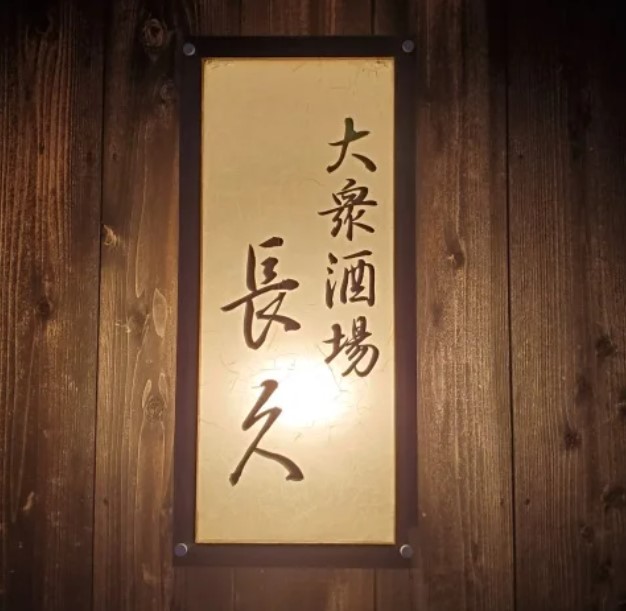 大衆酒場
長久